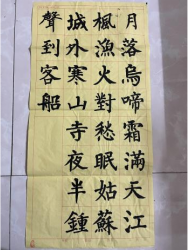 月落烏啼霜滿天江
楓漁火對愁眠姑蘇
城外寒山寺夜半鍾
聲到客船